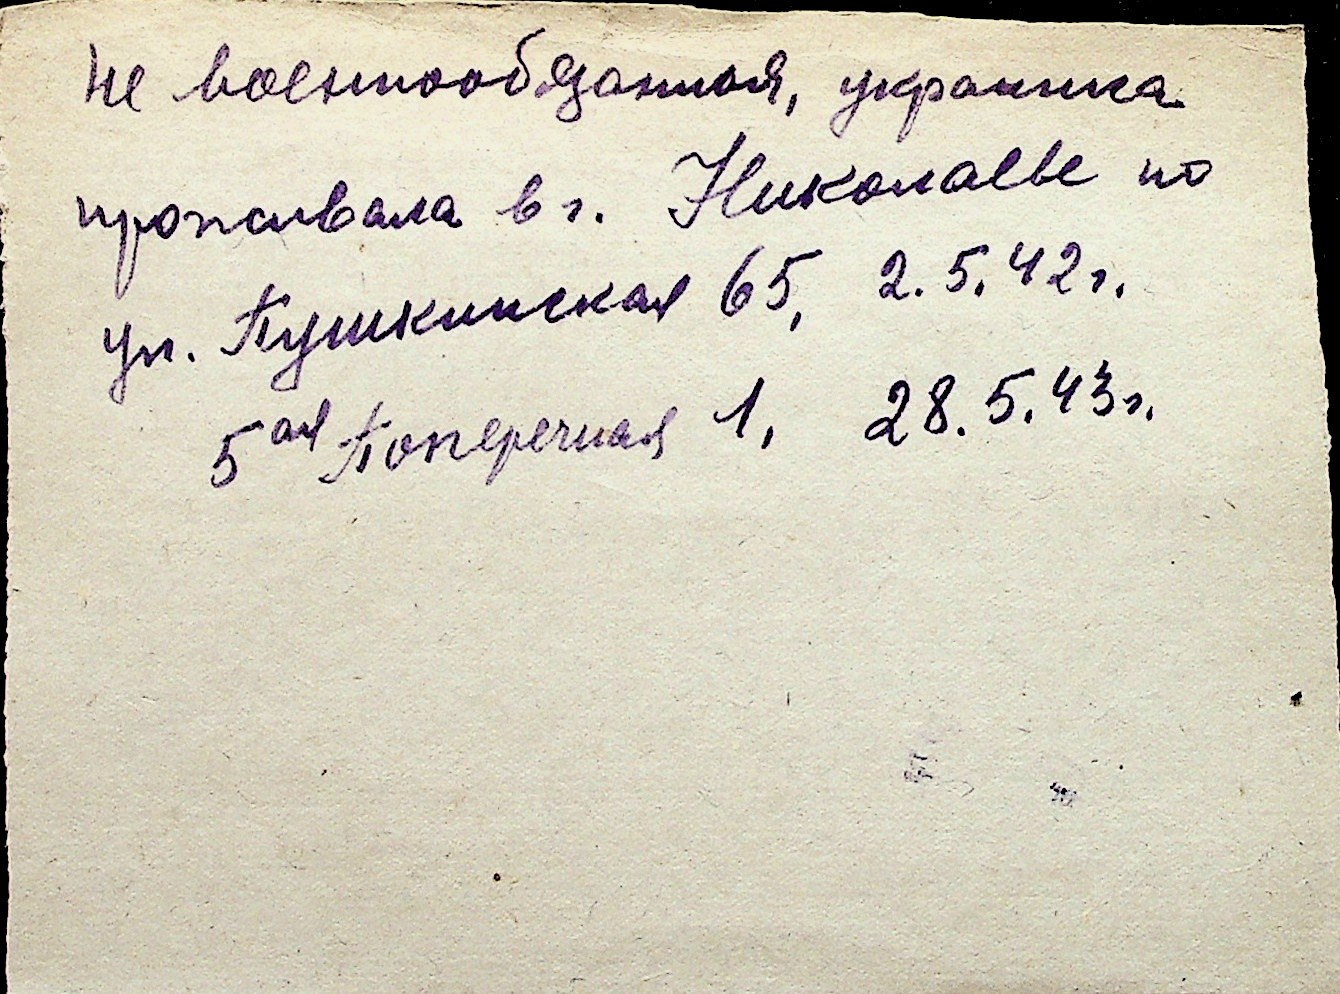 Не военнообязанная, украинка
проживала в г. Николаеве по
ул. Пушкинская 65, 2.5.42г.
5ая Поперечная 1, 28.5.43г.